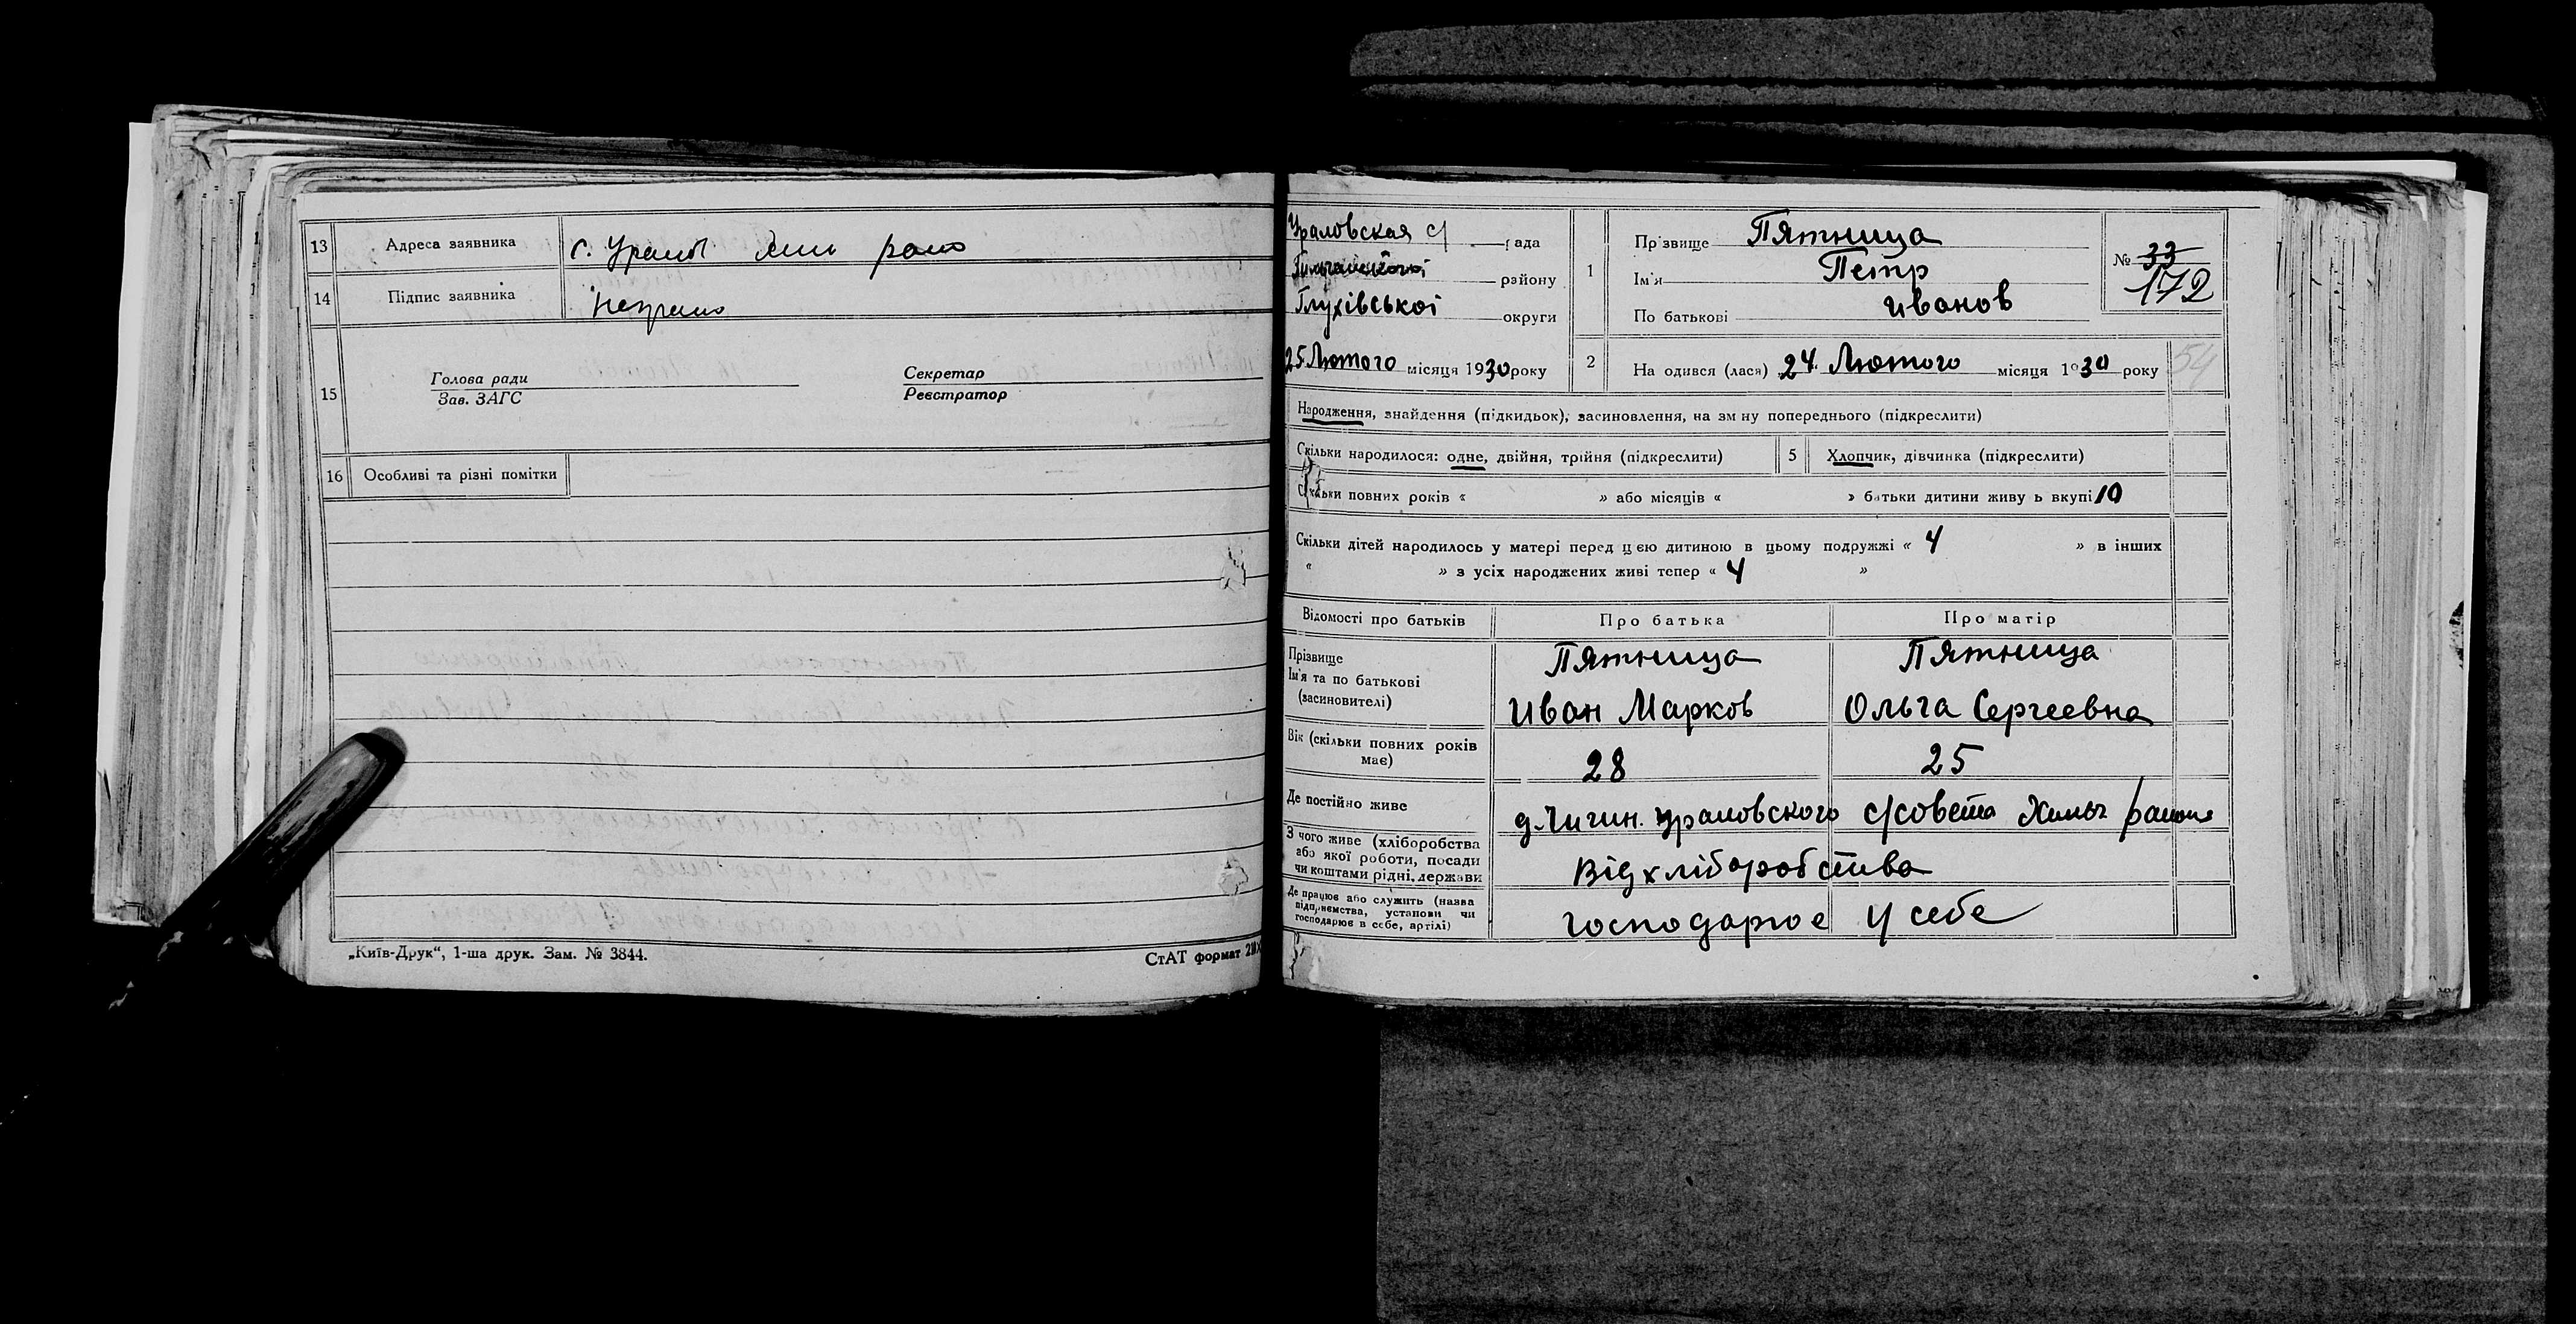 13 Адреса заявника с.
14 Підпис заявника
15 Голова ради Секретар
Зав. ЗАГС Реєстратор
16 Особливі та різні помітки
„Київ-Друк“, 1-ша друк. Зам. № 3844. СтАТ формат
Ураловская с/ рада
району
Глухівської округи
25 Лютого місяця 1930 року
1 Прізвище Пятница
Ім'я Петр
По батькові Иванов
№ 33
172
2 На одився (лася) 24 Лютого місяця 1930 року 54
Народження, знайдення (підкидьок), засиновлення, на зм ну попереднього (підкреслити)
Скільки народилося: одне, двійня, трійня (підкреслити) 5 Хлопчик, дівчинка (підкреслити)
Скільки повних років « » або місяців « » батьки дитини живу ь вкупі 10
Скільки дітей народилось у матері перед цією дитиною в цьому подружжі « 4 » в інших
« » з усіх народжених живі тепер « 4 »
Відомості про батьків Про батька Про матір
Прізвище Пятница Пятница
Ім'я та по батькові
(засиновителі) Иван Марков Ольга Сергеевна
Вік (скільки повних років
має) 28 25
Де постійно живе Ураловского с/совета района
З чого живе (хліборобства
або якої роботи, посади
чи коштами рідні, держави Від хліборобства
Де працює або служить (назва
підприємства, установи чи
господарює в себе, артілі) господарює у себе